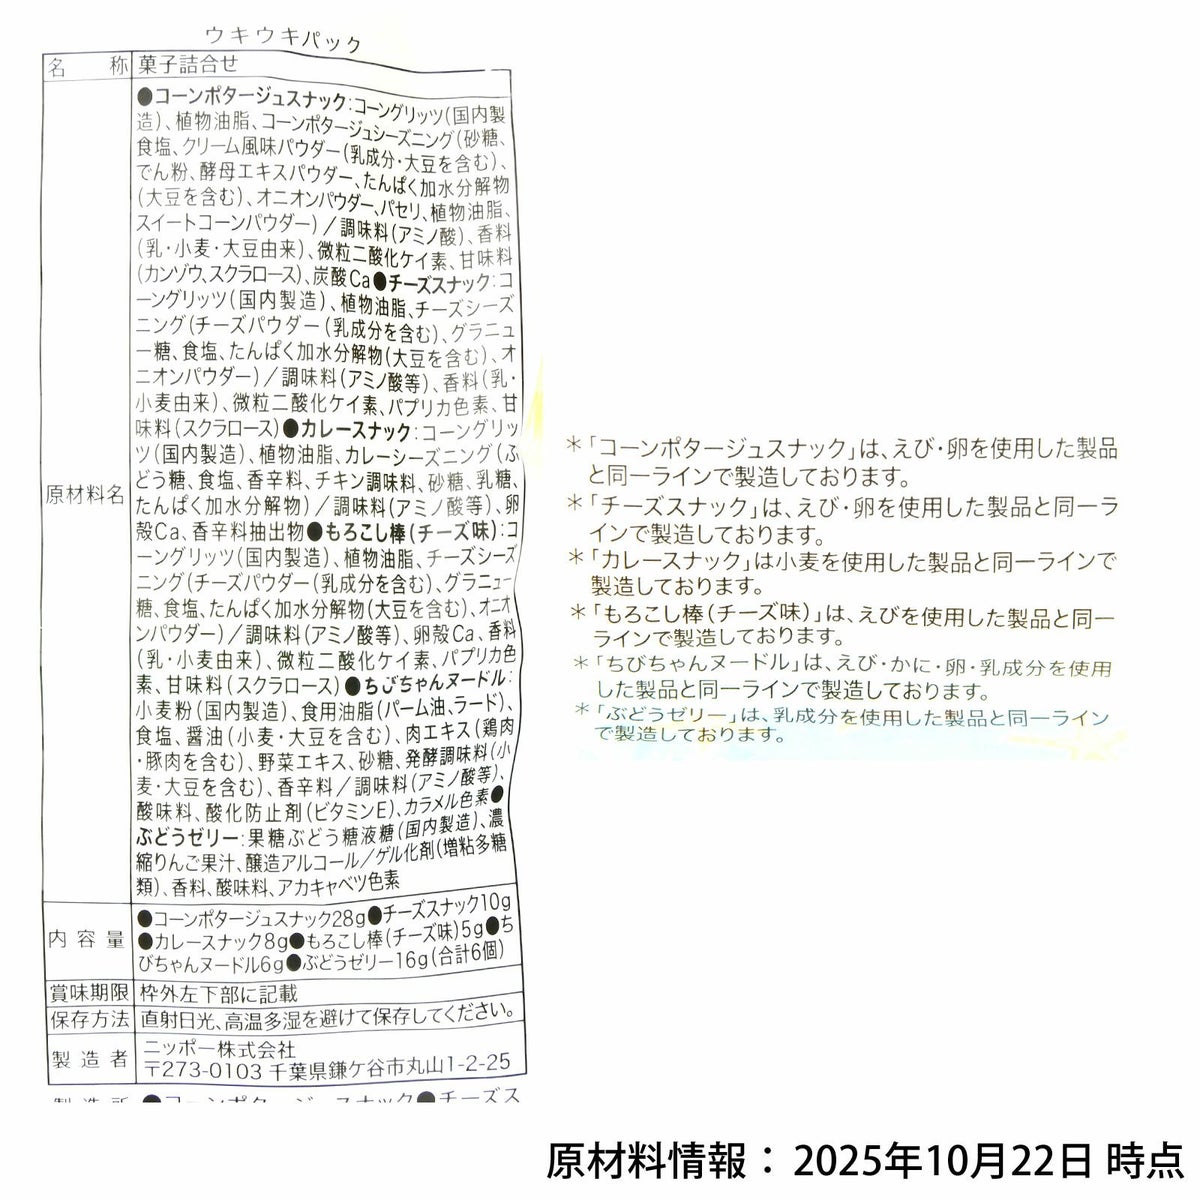 ウキウキパック
名 称 菓子詰合せ
原材料名
●コーンポタージュスナック:コーングリッツ(国内製
造)、植物油脂、コーンポタージュシーズニング(砂糖、
食塩、クリーム風味パウダー(乳成分・大豆を含む)、
でん粉、酵母エキスパウダー、たんぱく加水分解物
(大豆を含む)、オニオンパウダー、パセリ、植物油脂、
スイートコーンパウダー)/調味料(アミノ酸)、香料
(乳・小麦・大豆由来)、微粒二酸化ケイ素、甘味料
(カンゾウ、スクラロース)、炭酸Ca●チーズスナック:コ
ーングリッツ(国内製造)、植物油脂、チーズシーズ
ニング(チーズパウダー(乳成分を含む)、グラニュ
ー糖、食塩、たんぱく加水分解物(大豆を含む)、オ
ニオンパウダー)/調味料(アミノ酸等)、香料(乳・
小麦由来)、微粒二酸化ケイ素、パプリカ色素、甘
味料(スクラロース)●カレースナック:コーングリッ
ツ(国内製造)、植物油脂、カレーシーズニング(ぶ
どう糖、食塩、香辛料、チキン調味料、砂糖、乳糖、
たんぱく加水分解物)/調味料(アミノ酸等)、卵
殻Ca、香辛料抽出物●もろこし棒(チーズ味):コ
ーングリッツ(国内製造)、植物油脂、チーズシーズ
ニング(チーズパウダー(乳成分を含む)、グラニュー
糖、食塩、たんぱく加水分解物(大豆を含む)、オニオ
ンパウダー)/調味料(アミノ酸等)、卵殻Ca、香料
(乳・小麦由来)、微粒二酸化ケイ素、パプリカ色
素、甘味料(スクラロース)●ちびちゃんヌードル:
小麦粉(国内製造)、食用油脂(パーム油、ラード)、
食塩、醤油(小麦・大豆を含む)、肉エキス(鶏肉
・豚肉を含む)、野菜エキス、砂糖、発酵調味料(小
麦・大豆を含む)、香辛料/調味料(アミノ酸等)、
酸味料、酸化防止剤(ビタミンE)、カラメル色素●
ぶどうゼリー:果糖ぶどう糖液糖(国内製造)、濃
縮りんご果汁、醸造アルコール/ゲル化剤(増粘多糖
類)、香料、酸味料、アカキャベツ色素
内容量
●コーンポタージュスナック28g●チーズスナック10g
●カレースナック8g●もろこし棒(チーズ味)5g●ち
びちゃんヌードル6g●ぶどうゼリー16g(合計6個)
賞味期限 枠外左下部に記載
保存方法 直射日光、高温多湿を避けて保存してください。
製造者
ニッポー株式会社
〒273-0103 千葉県鎌ケ谷市丸山1-2-25
製造所 ●コーンポタージュスナック●チーズス
＊「コーンポタージュスナック」は、えび・卵を使用した製品
と同一ラインで製造しております。
＊「チーズスナック」は、えび・卵を使用した製品と同一ラ
インで製造しております。
＊「カレースナック」は小麦を使用した製品と同一ラインで
製造しております。
＊「もろこし棒(チーズ味)」は、えびを使用した製品と同一
ラインで製造しております。
＊「ちびちゃんヌードル」は、えび・かに・卵・乳成分を使用
した製品と同一ラインで製造しております。
＊「ぶどうゼリー」は、乳成分を使用した製品と同一ライン
で製造しております。
原材料情報： 2025年10月22日 時点